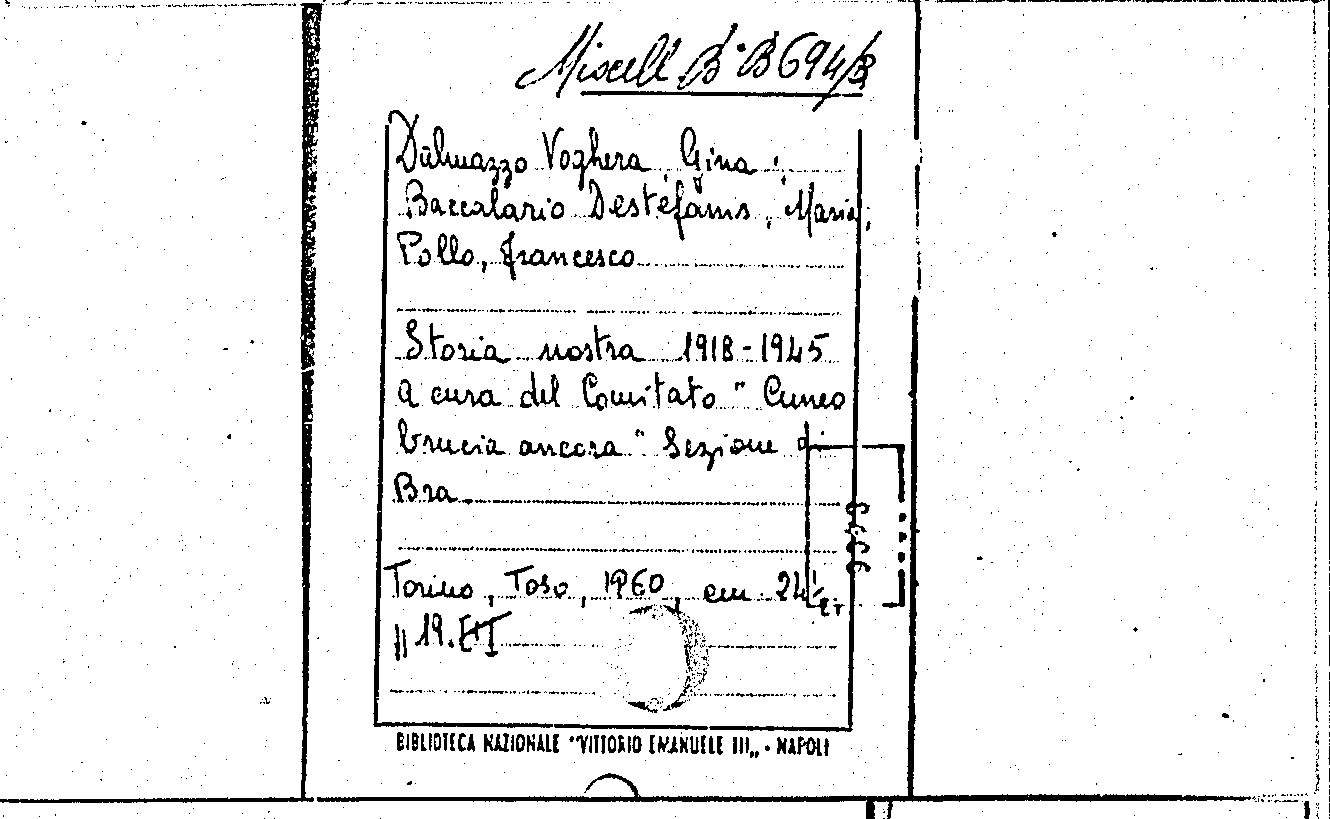 Miscell Bª B 694/3
Dalmazzo Voghera, Gina;
Baccalario Destefanis, Maria;
Pollo, Francesco
Storia nostra 1918-1945
a cura del Comitato "Cuneo
brucia ancora" Sezione di
Bra
Torino, Toso, 1960, cm 24
pp 19.
BIBLIOTECA NAZIONALE "VITTORIO EMANUELE III" - NAPOLI